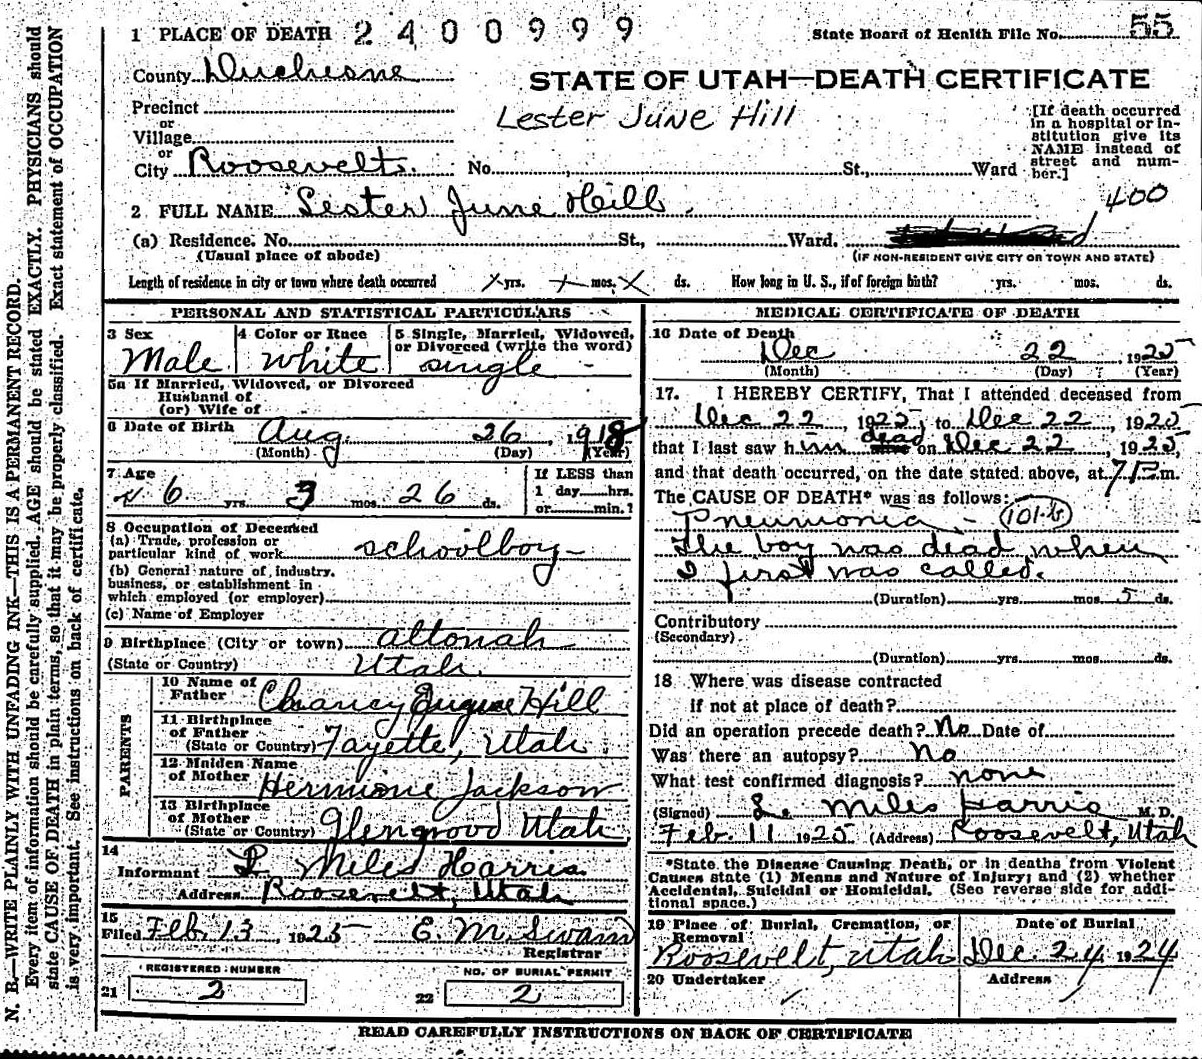 1 PLACE OF DEATH 2400999 State Board of Health File No. 55
County Duchesne
STATE OF UTAH—DEATH CERTIFICATE
Precinct
or
Village
Lester June Hill
[If death occurred in a hospital or institution give its NAME instead of street and number.]
or
City Roosevelt. No. St., Ward
400
2 FULL NAME Lester June Hill.
(a) Residence. No. St., Ward.
(Usual place of abode) (IF NON-RESIDENT GIVE CITY OR TOWN AND STATE)
Length of residence in city or town where death occurred X yrs. X mos. X ds. How long in U. S., if of foreign birth? yrs. mos. ds.
PERSONAL AND STATISTICAL PARTICULARS
3 Sex Male
4 Color or Race White
5 Single, Married, Widowed, or Divorced (write the word) single
5a If Married, Widowed, or Divorced
Husband of
(or) Wife of
6 Date of Birth Aug. 26, 1918
(Month) (Day) (Year)
7 Age 6 yrs. 3 mos. 26 ds.
If LESS than
1 day hrs.
or min.?
8 Occupation of Deceased
(a) Trade, profession or
particular kind of work schoolboy
(b) General nature of industry.
business, or establishment in
which employed (or employer)
(c) Name of Employer
9 Birthplace (City or town) Altonah
(State or Country) Utah.
PARENTS
10 Name of Father Chancy Hill
11 Birthplace of Father
(State or Country) Fayette, Utah
12 Maiden Name of Mother
Hermione Jackson
13 Birthplace of Mother
(State or Country) Glengrood Utah
14
Informant L Miles Harris
Address Roosevelt, Utah
15
Filed Feb. 13, 1925 E. M. Swain
Registrar
REGISTERED NUMBER
21 2
NO. OF BURIAL PERMIT
22 2
MEDICAL CERTIFICATE OF DEATH
16 Date of Death
Dec 22, 1925
(Month) (Day) (Year)
17. I HEREBY CERTIFY, That I attended deceased from
Dec 22, 1925, to Dec 22, 1925
that I last saw him dead on Dec 22, 1925,
and that death occurred, on the date stated above, at 7 P.m.
The CAUSE OF DEATH* was as follows:
Pneumonia - 101-b
The boy was dead when
I first was called.
(Duration) yrs. mos. 5 ds.
Contributory
(Secondary)
(Duration) yrs. mos. ds.
18 Where was disease contracted
if not at place of death?
Did an operation precede death? No Date of
Was there an autopsy? No
What test confirmed diagnosis? none
(Signed) L. Miles Harris M. D.
Feb. 11 1925 (Address) Roosevelt, Utah
*State the Disease Causing Death, or in deaths from Violent
Causes state (1) Means and Nature of Injury; and (2) whether
Accidental, Suicidal or Homicidal. (See reverse side for additional space.)
19 Place of Burial, Cremation, or Removal
Roosevelt, Utah
Date of Burial
Dec. 24. 1924
20 Undertaker Address
READ CAREFULLY INSTRUCTIONS ON BACK OF CERTIFICATE
N. B.—WRITE PLAINLY WITH UNFADING INK—THIS IS A PERMANENT RECORD.
Every item of information should be carefully supplied. AGE should be stated EXACTLY. PHYSICIANS should
state CAUSE OF DEATH in plain terms, so that it may be properly classified. Exact statement of OCCUPATION
is very important. See instructions on back of certificate.